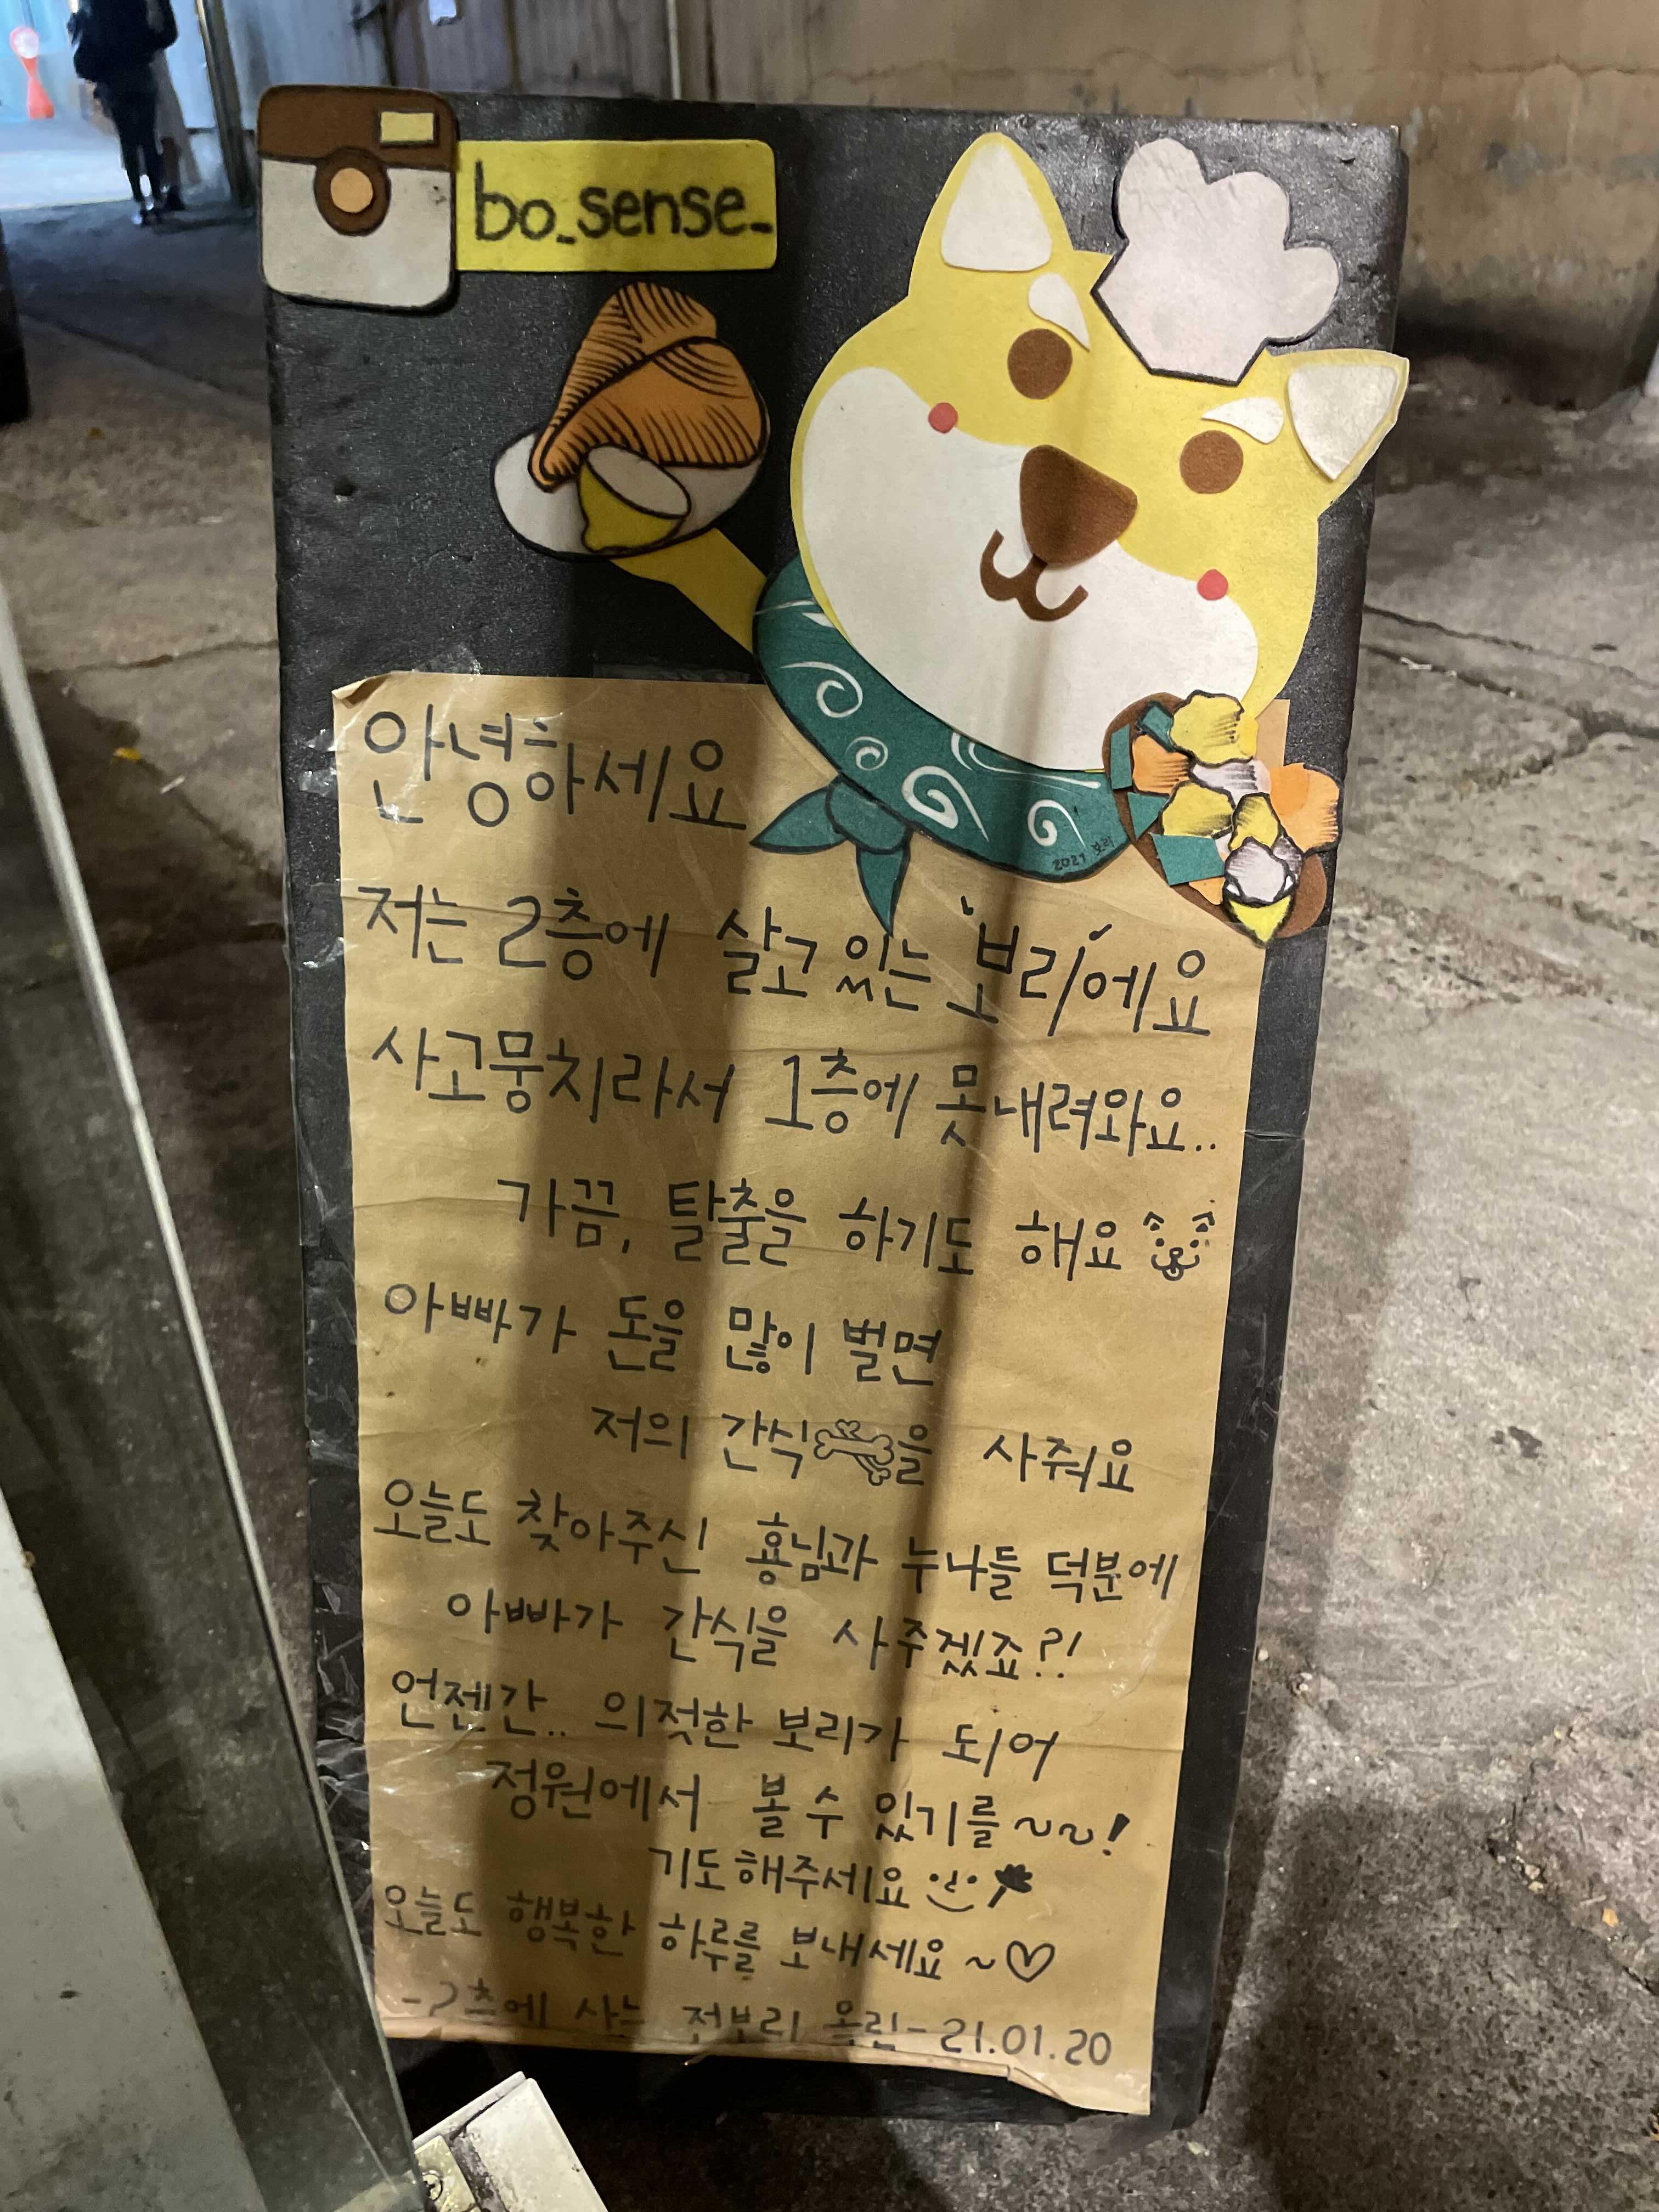 bo_sense_
2021 보리
안녕하세요
저는 2층에 살고 있는 '보리'에요
사고뭉치라서 1층에 못내려와요..
가끔, 탈출을 하기도 해요
아빠가 돈을 많이 벌면
저의 간식을 사줘요
오늘도 찾아주신 횽님과 누나들 덕분에
아빠가 간식을 사주겠죠?!
언젠간.. 의젓한 보리가 되어
정원에서 볼 수 있기를 ~~!
기도해주세요
오늘도 행복한 하루를 보내세요 ~♡
-2층에 사는 전보리 올림- 21.01.20